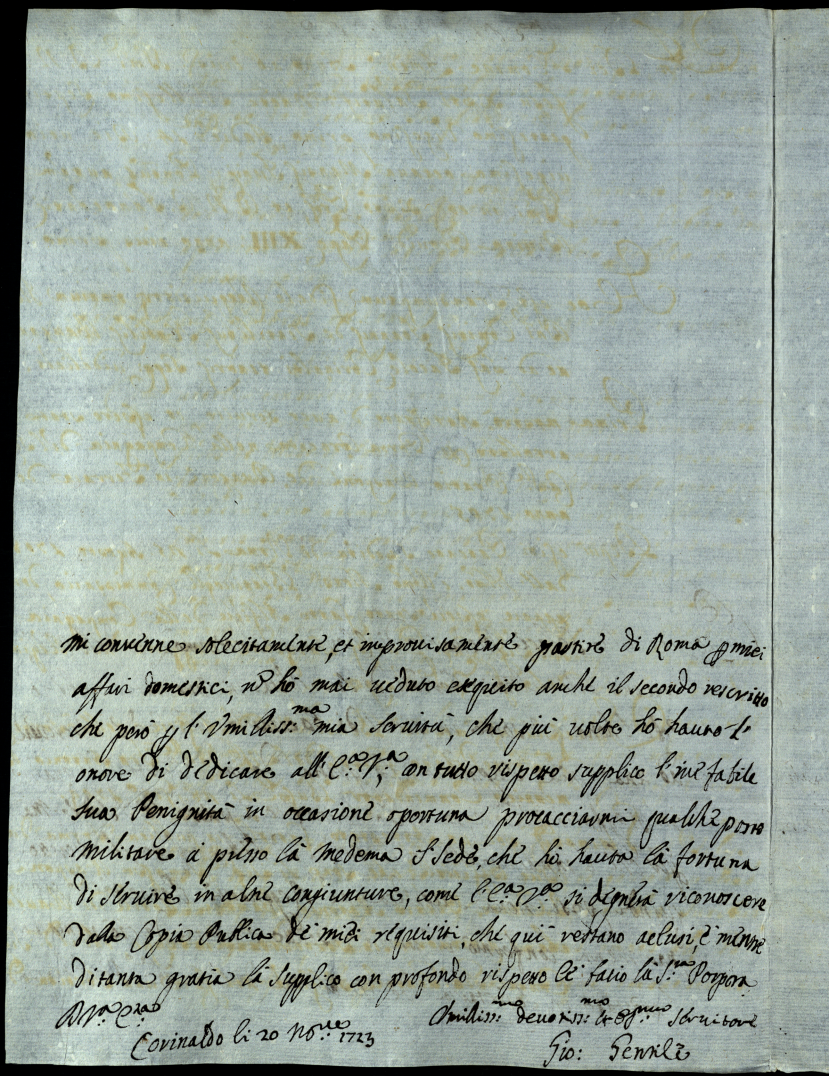 mi convenne solecitamente, et improvisamente partire di Roma p miei
affari domestici, nè hò mai veduto exquito anche il secondo rescritto
che però p l'Vmiliss:ma mia servitù, che più volte hò hauto l'
onore di dedicare all'E:a V:a, con tutto rispetto supplico l'inefabile
sua Benignità in occasione oportuna procacciarmi qualche posto
militare a presso la medema S. Sede, che hò hauta la fortuna
di servire in altre congiunture, come l'E:a V:a si degnerà riconoscere
dalla Copia Publica de miei requisiti, che qui restano aclusi, e mentre
di tanta gratia la supplico con profondo rispetto le bacio la S:ra Porpora
D V:a E:za
Vmiliss:mo devotiss:mo et servitore
Corinaldo li 20 Nov:re 1723
Gio: Gentile